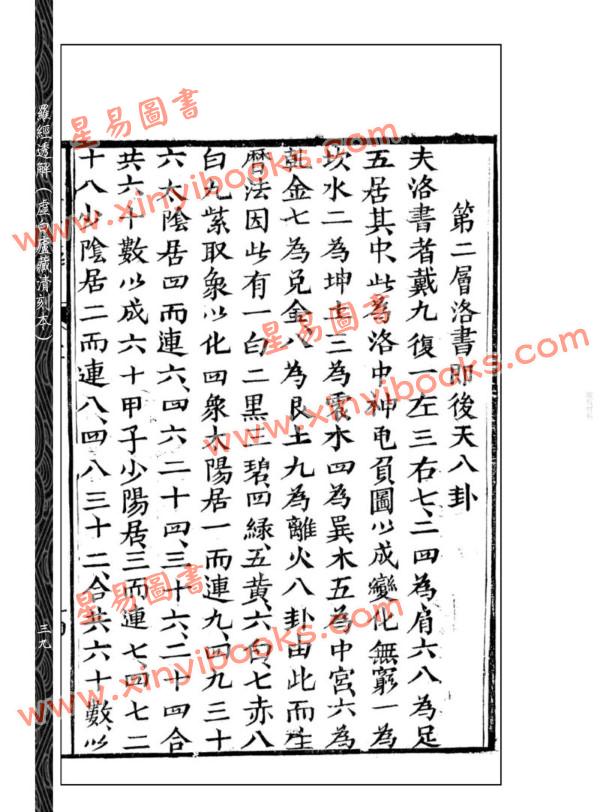 第二層洛書即後天八卦
夫洛書者戴九復一左三右七、二四為肩六八為足
五居其中、此為洛中神龟負圖以成變化無窮一為
坎水二為坤土三為震木四為巽木五為中宮、六為
乾金七為兌金八為艮土九為離火八卦由此而生
曆法因此有一白二黑三碧、四緑、五黄、六白、七赤八
白九紫取象以化四象太陽居一而連九、四九三十
六太陰居四而連六、四六二十四、三十六、二十四合
共六十數以成六十甲子少陽居三而連七、四七二
十八少陰居二而連八、四八三十二、合共六十數、以
羅經透解(虛白廬藏清刻本)
三九
星易圖書
www.xinyibooks.com
星易圖書
www.xinyibooks.com
星易圖書
www.xinyibooks.com